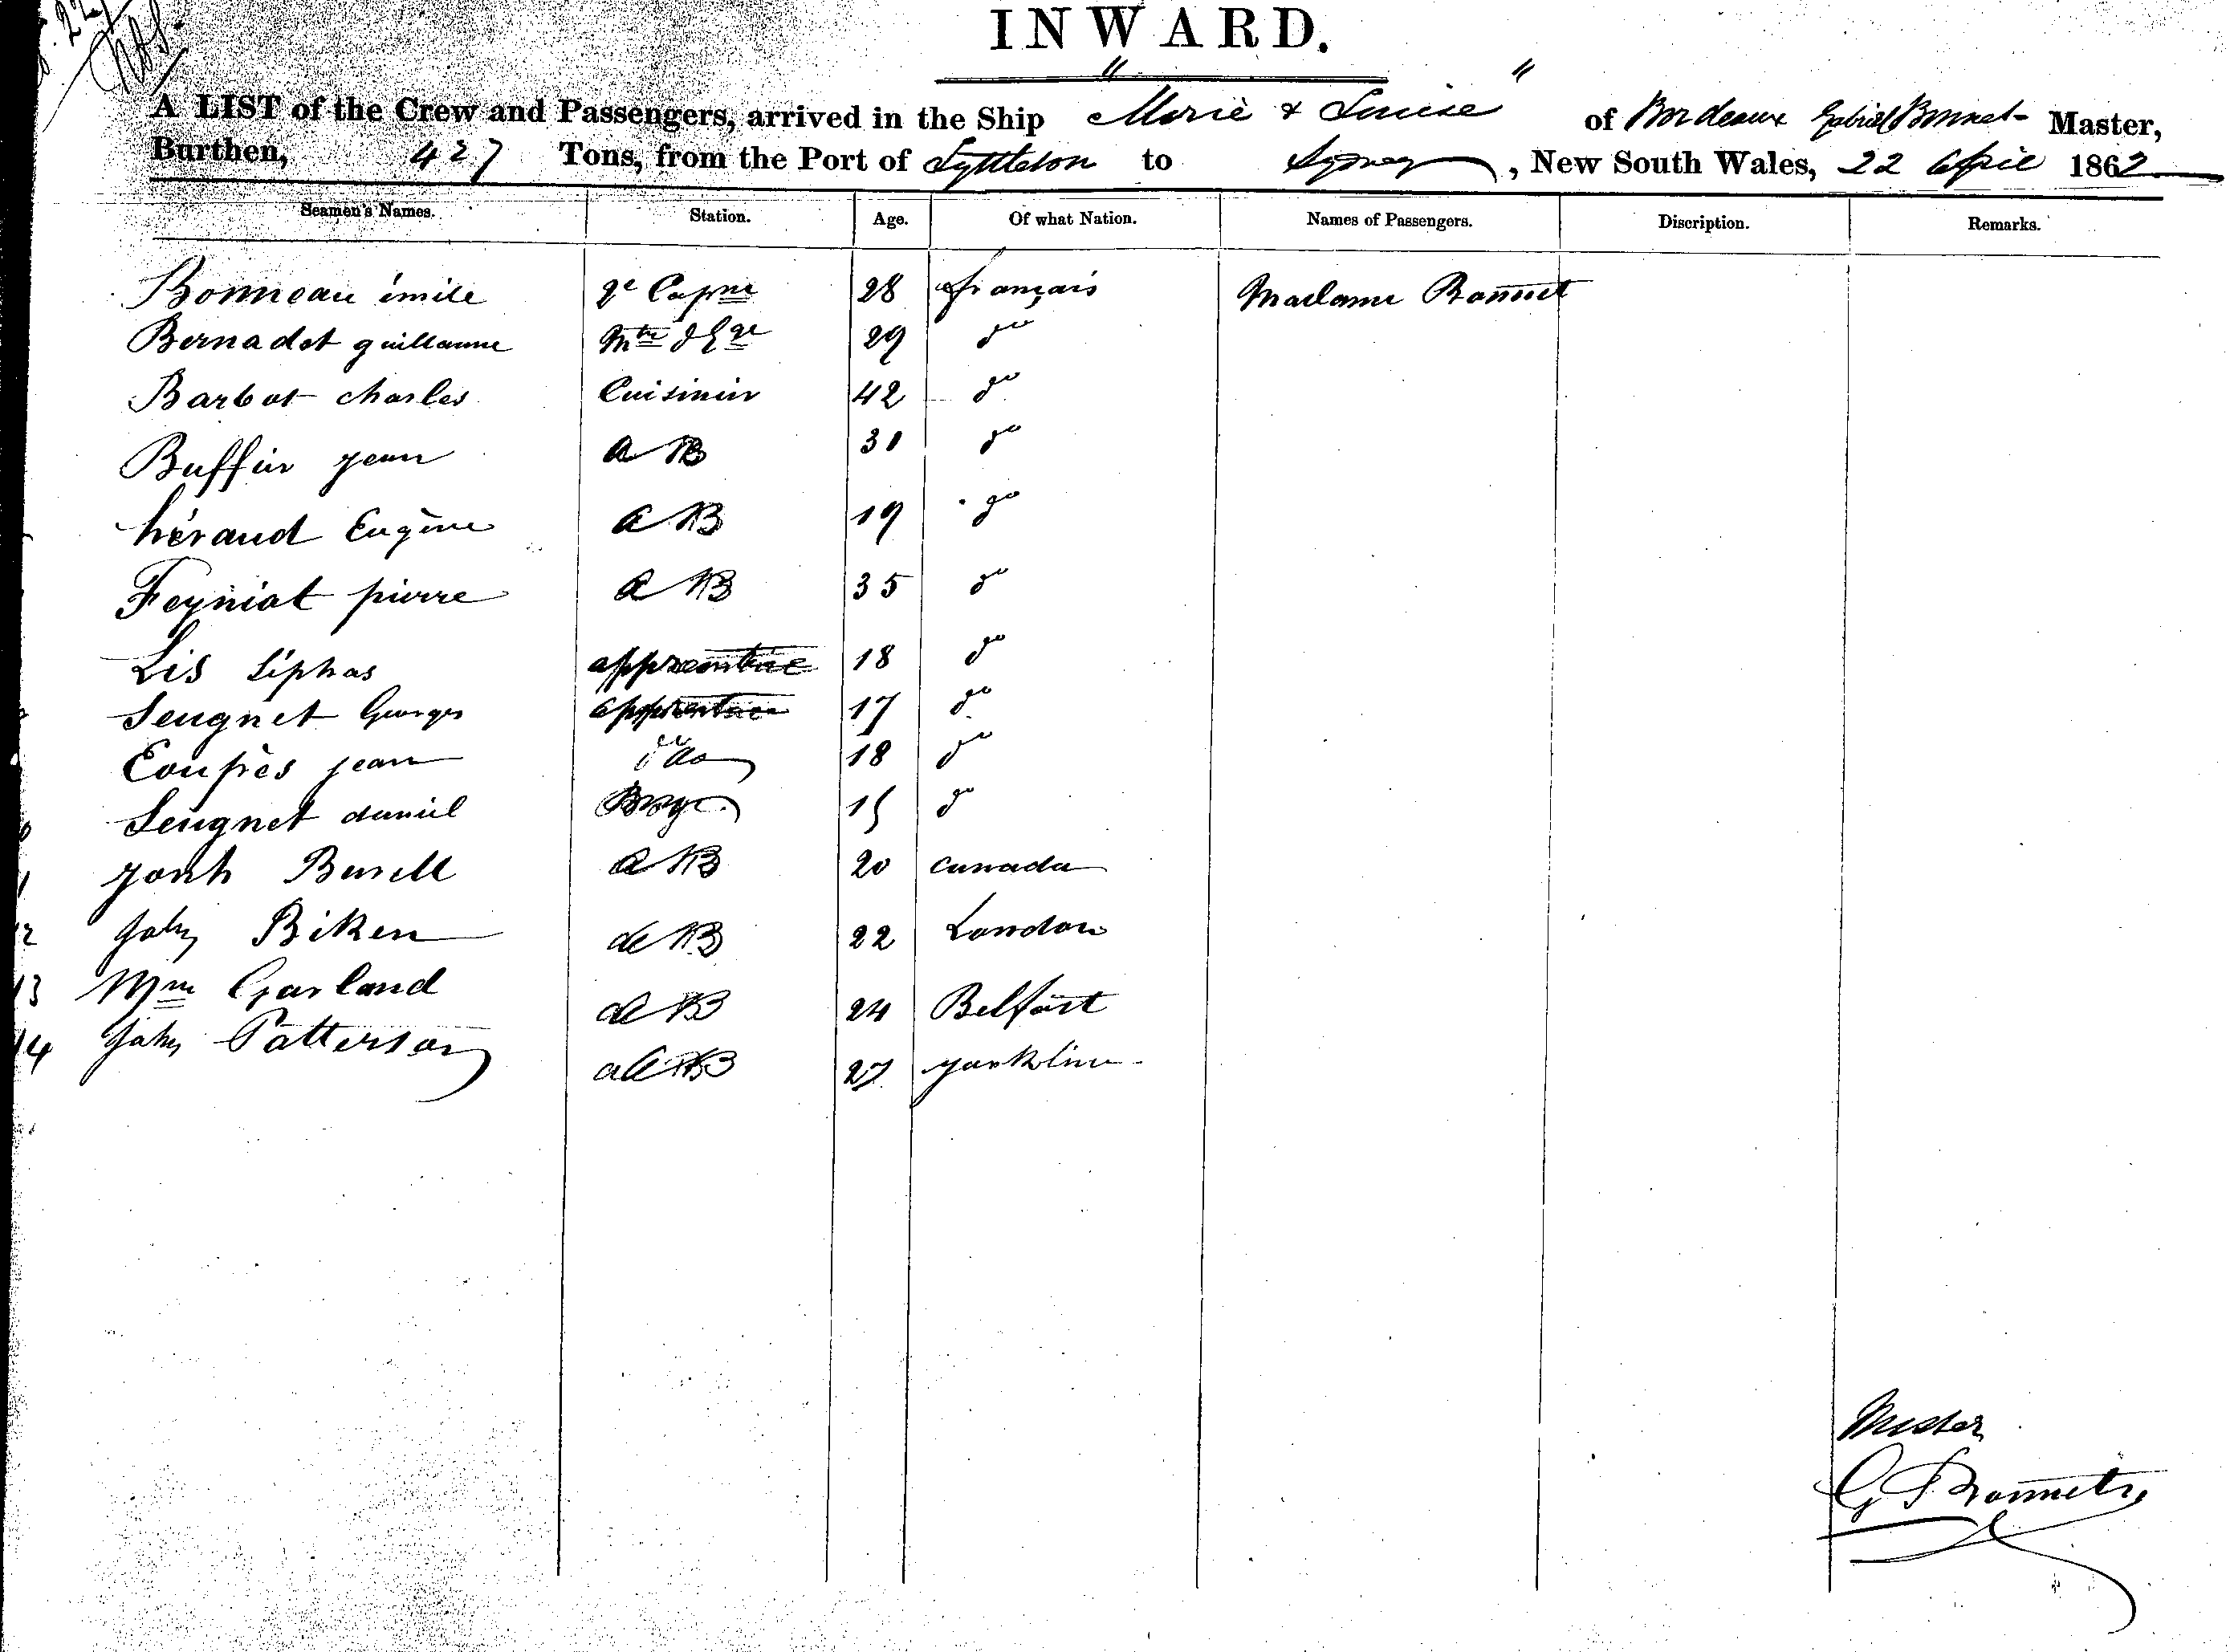 INWARD.
A LIST of the Crew and Passengers, arrived in the Ship "Marie & Louise" of Bordeaux Gabriel Bonnet Master,
Burthen, 427 Tons, from the Port of Lyttleton to Sydney, New South Wales, 22 April 1862
Seamen's Names. Station. Age. Of what Nation. Names of Passengers. Discription. Remarks.
Bonneau émile 2e Capne 28 français Madame Bonnet
Bernadet guillaume Mtre d'Eqge 29 do
Barbot charles Cuisinier 42 do
Buffin jean AB 30 do
héraud Eugène AB 19 do
Feyniat pierre AB 35 do
Lis Séphas apprentice 18 do
Seugnet Georges apprentice 17 do
Coupès jean do 18 do
Seugnet daniel Boy 15 do
11 Jonh Burell AB 20 canada
12 John Biken AB 22 London
13 Wm Garland AB 24 Belfast
14 John Patterson AB 27
Master
G Bonnet